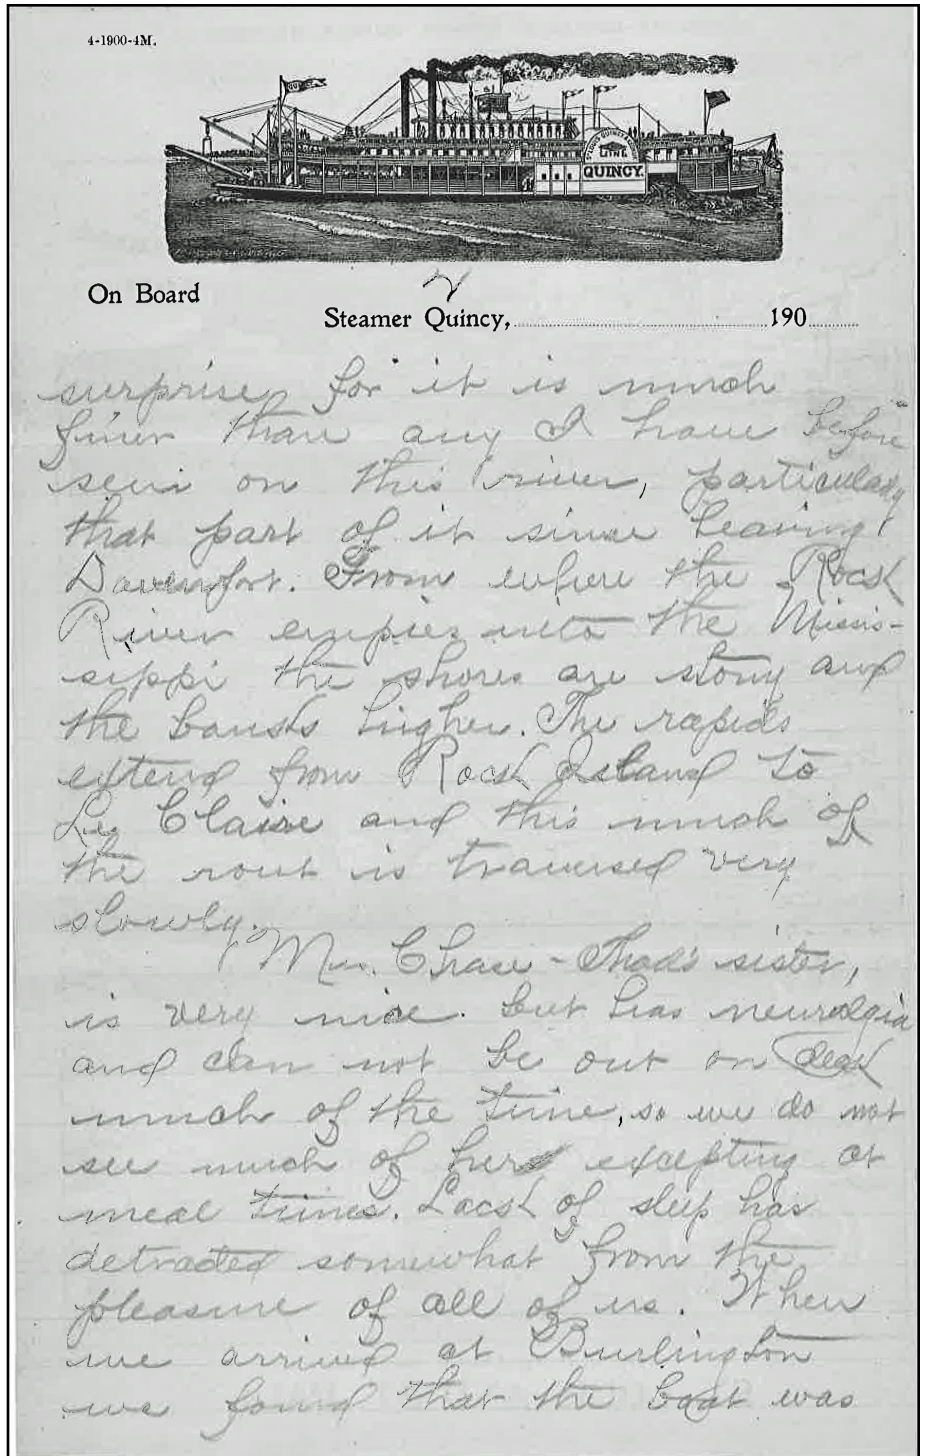 4-1900-4M.
QUINCY
LINE
QUINCY.
On Board
2
Steamer Quincy, 190
surprise, for it is much
finer than any I have before
seen on this river, particularly
that part of it since leaving
Davenport. From where the Rock
River empies into the Missis-
sippi the shores are stony and
the banks higher. The rapids
extend from Rock Island to
Le Claire and this much of
the rout is traversed very
slowly.
Mrs. Chase - Thad's sister,
is very nice. but has neuralgia
and can not be out on deck
much of the time, so we do not
see much of her excepting at
meal times. Lack of sleep has
detracted somewhat from the
pleasure of all of us. When
we arrived at Burlington
we found that the boat was